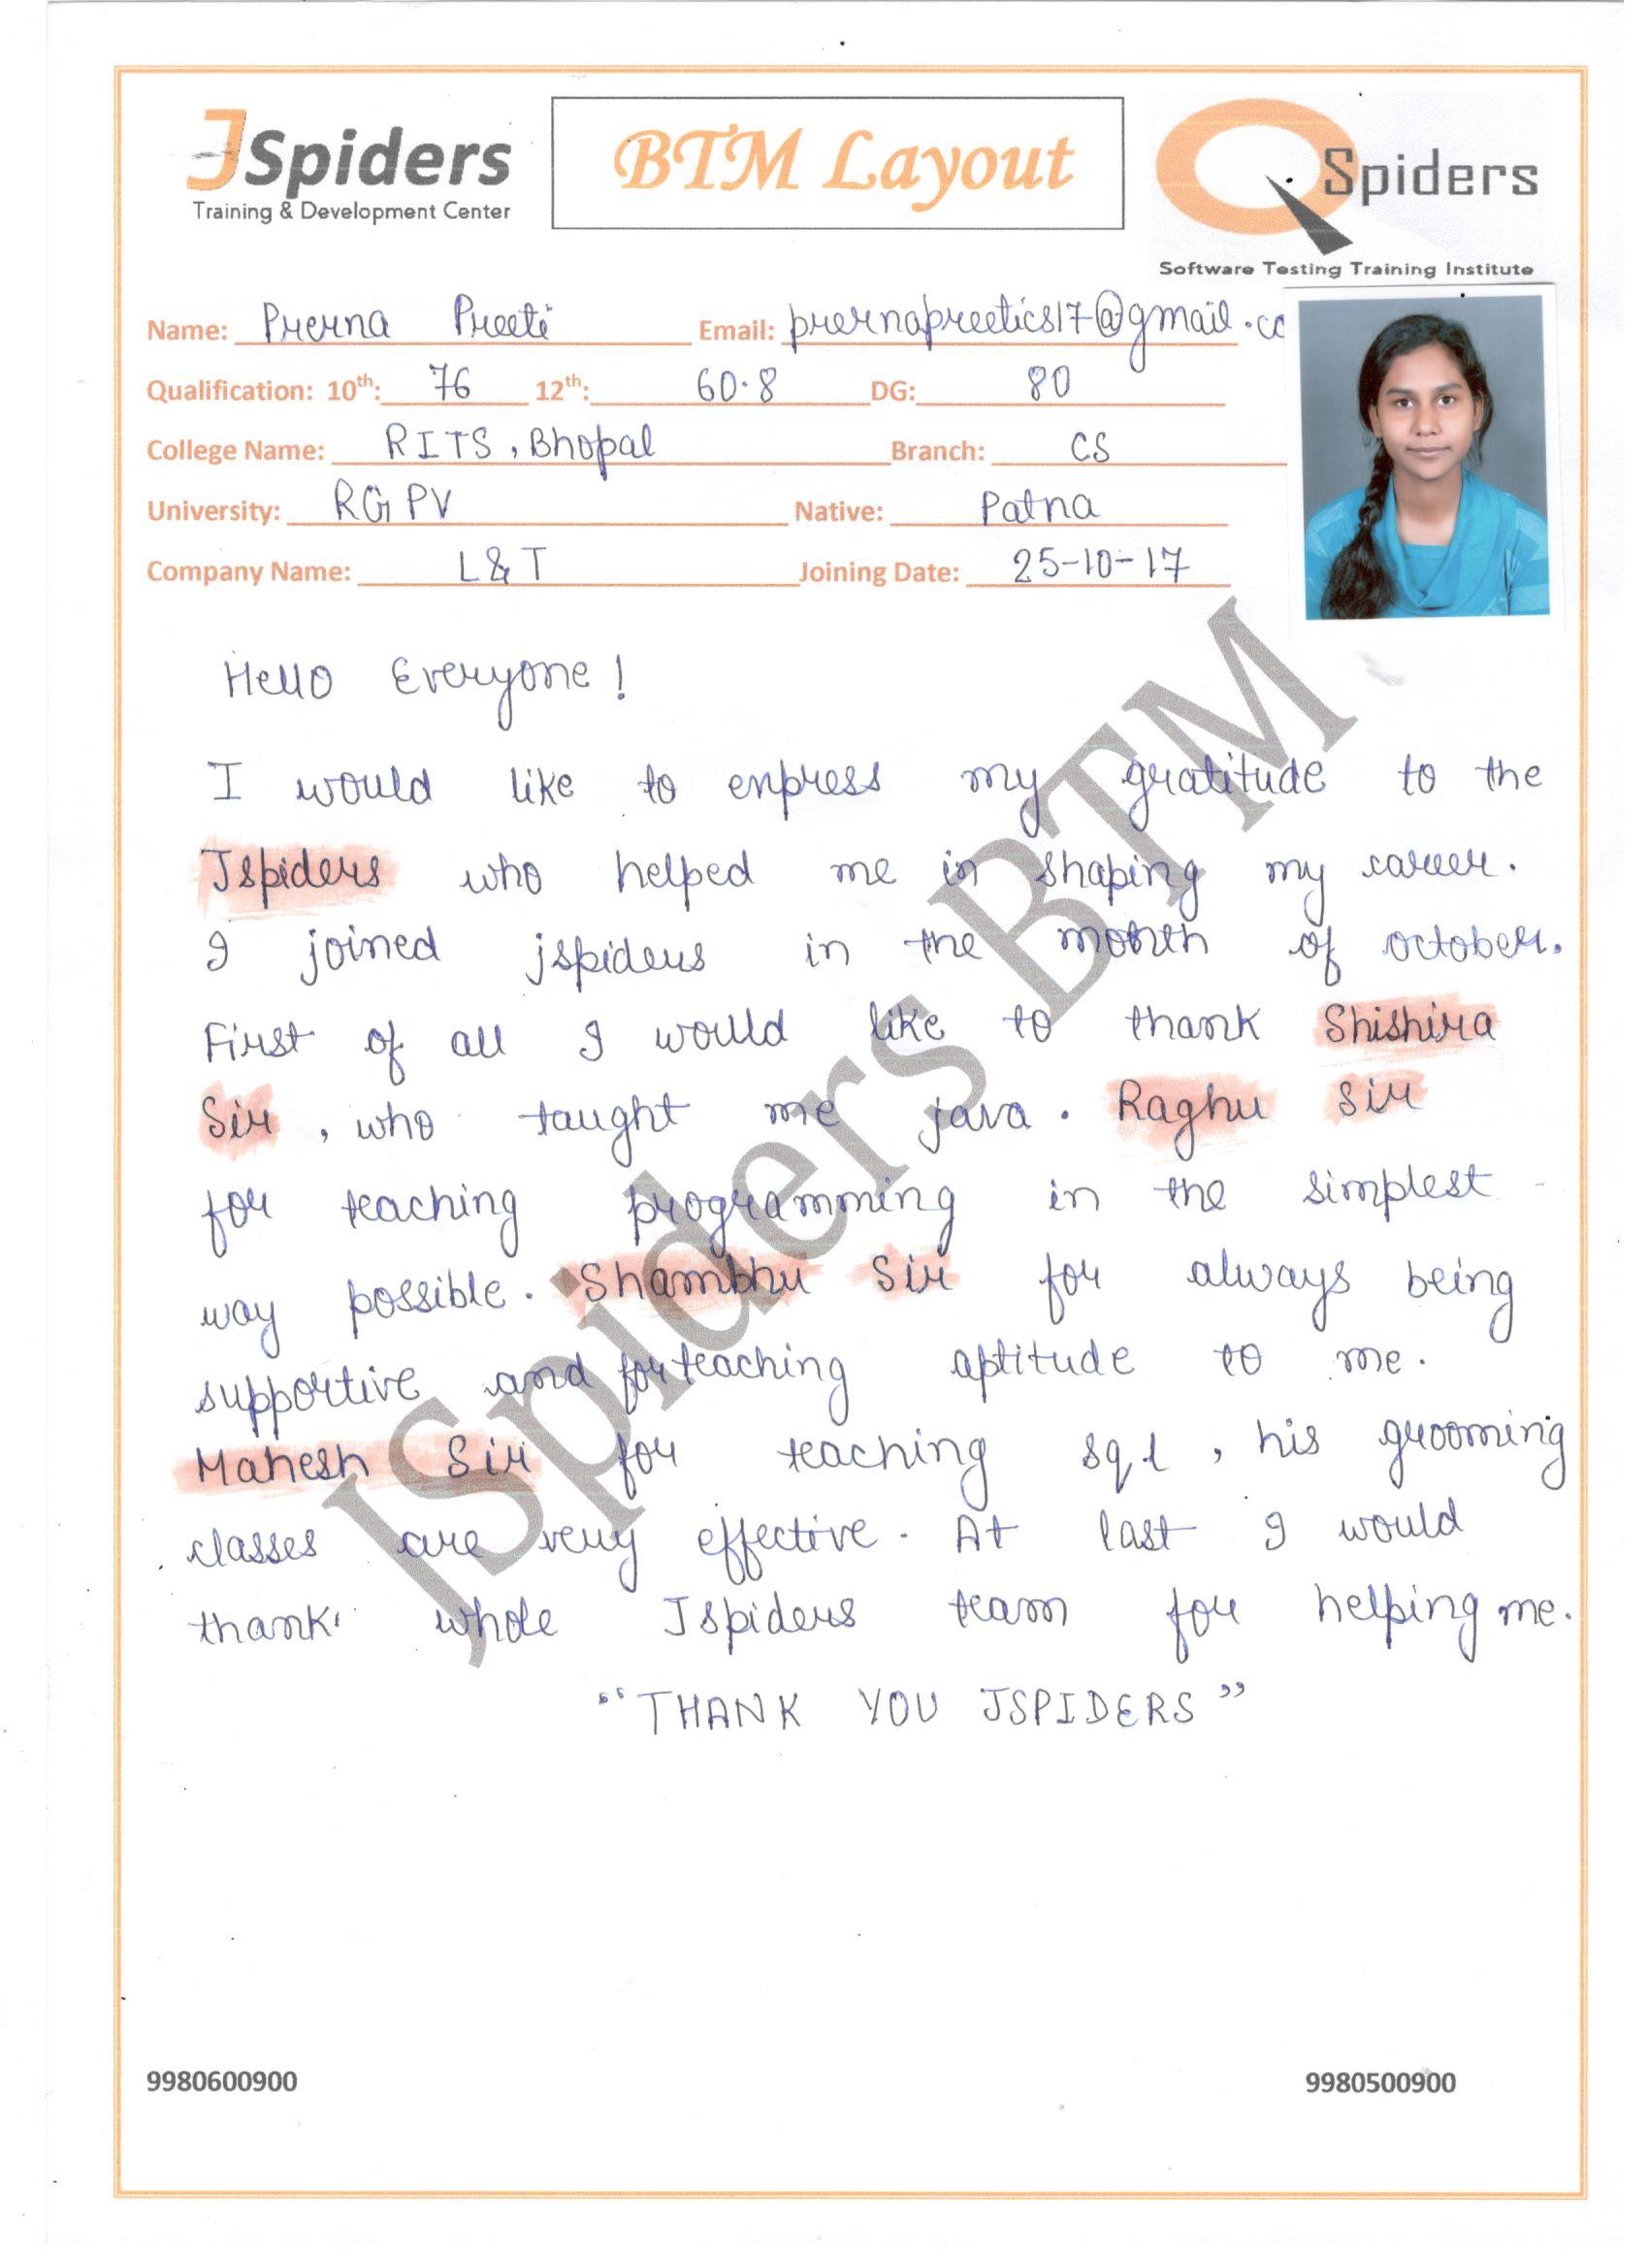 JSpiders
Training & Development Center
BTM Layout
QSpiders
Software Testing Training Institute
Name: Prerna Preeti Email: prernapreetics17@gmail.co
Qualification: 10th: 76 12th: 60.8 DG: 80
College Name: RITS, Bhopal Branch: CS
University: RGPV Native: Patna
Company Name: L&T Joining Date: 25-10-17
Hello Everyone!
I would like to enpress my gratitude to the
Jspiders who helped me in shaping my career.
I joined jspiders in the month of october.
First of all I would like to thank Shishira
Sir, who taught me java. Raghu Sir
for teaching programming in the simplest
way possible. Shambhu Sir for always being
supportive and for teaching aptitude to me.
Mahesh Sir for teaching sql, his grooming
classes are very effective. At last I would
thank whole Jspiders team for helping me.
"THANK YOU JSPIDERS"
JSpiders BTM
9980600900 9980500900